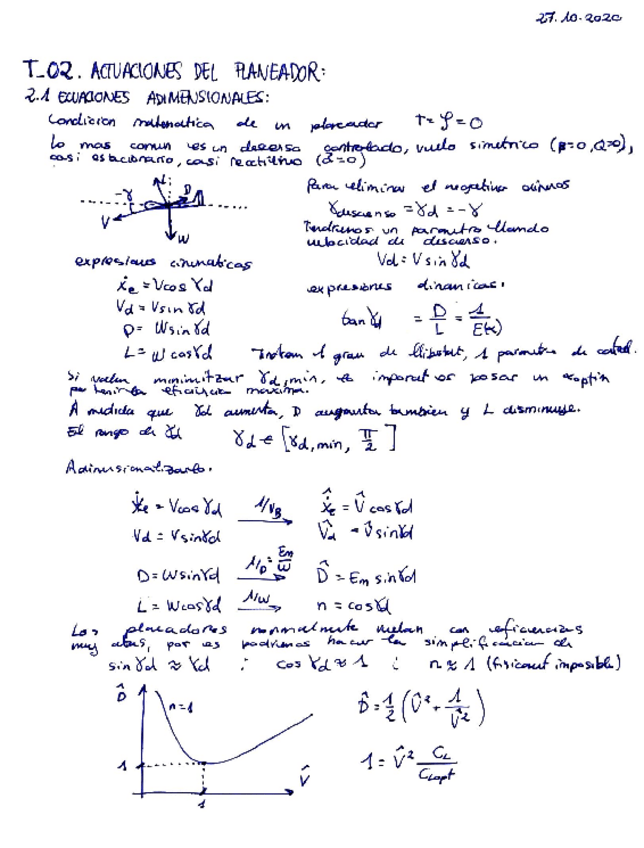 27.10.2020
T_02. ACTUACIONES DEL PLANEADOR:
2.1 ECUACIONES ADIMENSIONALES:
Condicion matematica de un planeador T = φ = 0
Lo mas comun es un descenso controlado, vuelo simetrico (β=0, Q=0),
casi estacionario, casi rectilineo
-γ L D
V
W
Para eliminar el negativo
γdescenso = γd = -γ
Tendremos un parametro llamado
velocidad de descenso.
Vd = V sin γd
expresiones cinematicas
ẋe = V cos γd
Vd = V sin γd
D = W sin γd
L = W cos γd
expresiones dinamicas:
tan γd = D/L = 1/E(α)
1 parametro de control.
Si minimizar γd,min, es
eficiencia maxima.
A medida que γd aumenta, D augmenta tambien y L disminuye.
El rango de γd γd ∈ [γd,min, π/2]
Adimensionalizando.
ẋe = V cos γd 1/VB → x̂̇e = V̂ cos γd
Vd = V sin γd V̂d = V̂ sin γd
D = W sin γd 1/D = Em/W → D̂ = Em sin γd
L = W cos γd 1/W → n = cos γd
Los planeadores normalmente vuelan con eficiencias
muy altas, por es podremos hacer la simplificacion de
sin γd ≈ γd ; cos γd ≈ 1 ; n ≈ 1 (fisicament imposible)
D̂ n=1
1
V̂
1
D̂ = 1/2 (V̂² + 1/V̂²)
1 = V̂² CL/CLopt